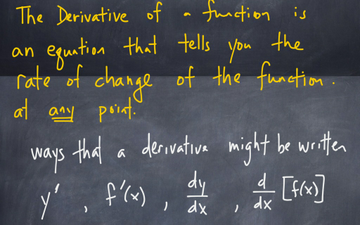 The Derivative of a function is
an equation that tells you the
rate of change of the function.
at any point.
ways that a derivative might be written
y' , f'(x) , dy/dx , d/dx [f(x)]